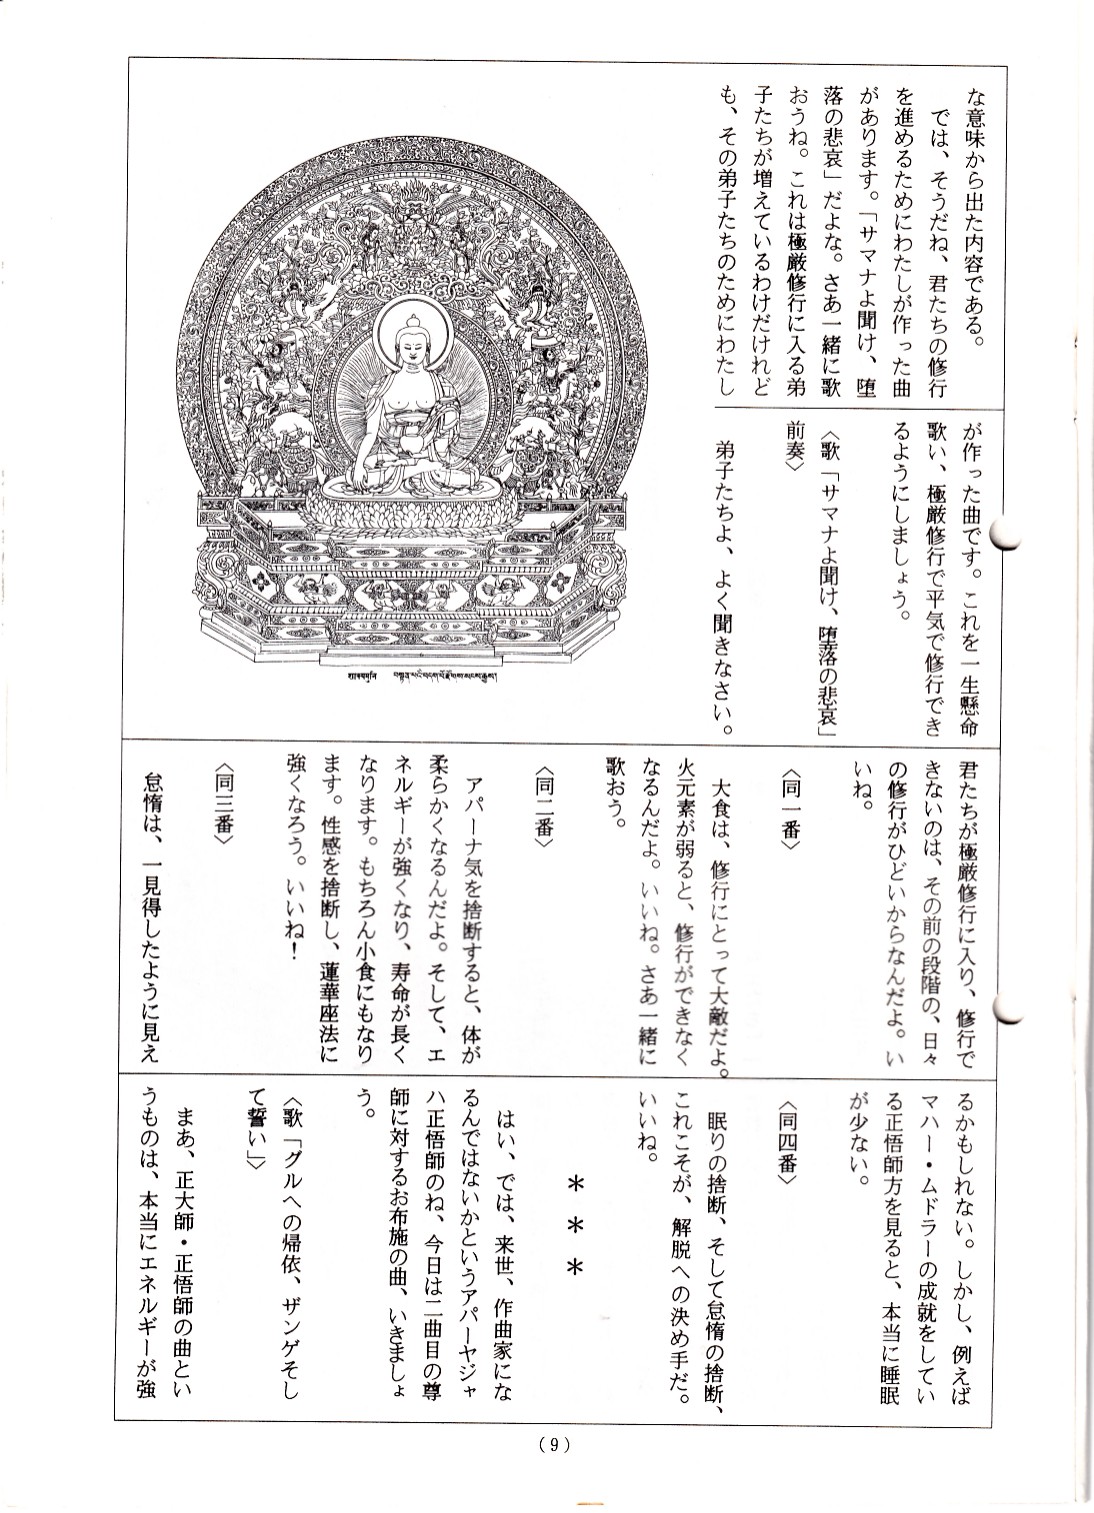 な意味から出た内容である。
では、そうだね、君たちの修行
を進めるためにわたしが作った曲
があります。「サマナよ聞け、堕
落の悲哀」だよな。さあ一緒に歌
おうね。これは極厳修行に入る弟
子たちが増えているわけだけれど
も、その弟子たちのためにわたし
が作った曲です。これを一生懸命
歌い、極厳修行で平気で修行でき
るようにしましょう。
〈歌「サマナよ聞け、堕落の悲哀」
前奏〉
弟子たちよ、よく聞きなさい。
君たちが極厳修行に入り、修行で
きないのは、その前の段階の、日々
の修行がひどいからなんだよ。い
いね。
〈同一番〉
大食は、修行にとって大敵だよ。
火元素が弱ると、修行ができなく
なるんだよ。いいね。さあ一緒に
歌おう。
〈同二番〉
アパーナ気を捨断すると、体が
柔らかくなるんだよ。そして、エ
ネルギーが強くなり、寿命が長く
なります。もちろん小食にもなり
ます。性感を捨断し、蓮華座法に
強くなろう。いいね！
〈同三番〉
怠惰は、一見得したように見え
るかもしれない。しかし、例えば
マハー・ムドラーの成就をしてい
る正悟師方を見ると、本当に睡眠
が少ない。
〈同四番〉
眠りの捨断、そして怠惰の捨断、
これこそが、解脱への決め手だ。
いいね。
＊　＊　＊
はい、では、来世、作曲家にな
るんではないかというアパーヤジャ
ハ正悟師のね、今日は二曲目の尊
師に対するお布施の曲、いきましょ
う。
〈歌「グルへの帰依、ザンゲそし
て誓い」〉
まあ、正大師・正悟師の曲とい
うものは、本当にエネルギーが強
(9)